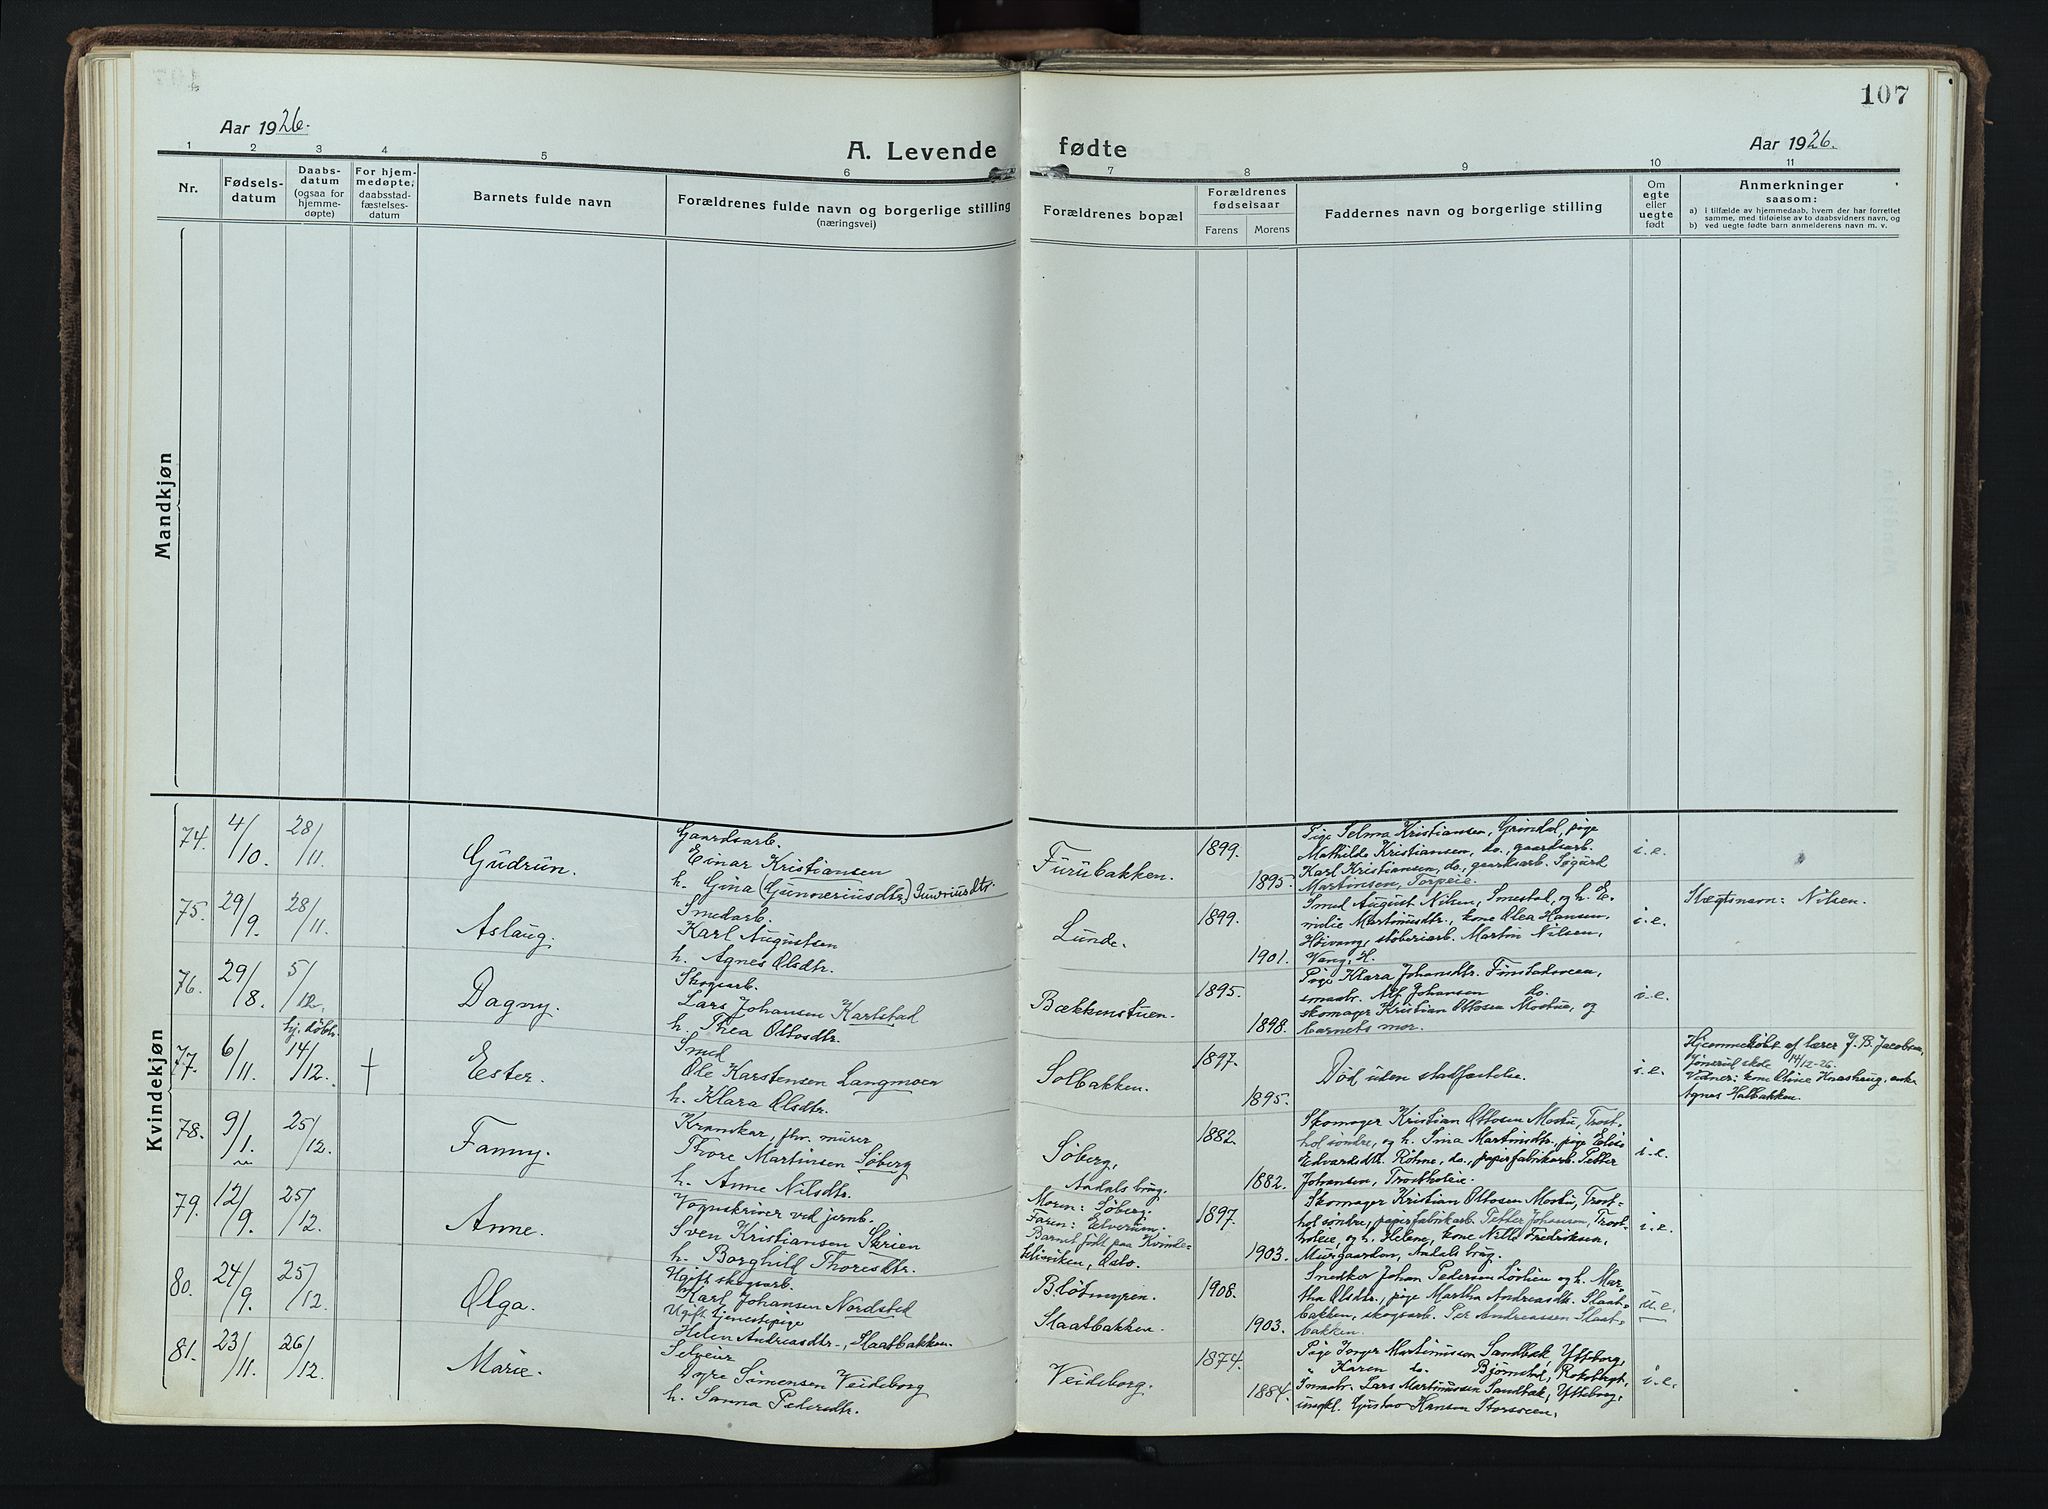 107
Aar 1926.
A. Levende fødte
Aar 1926.
1 2 3 4 5 6 7 8 9 10 11
Nr.
Fødsels-
datum
Daabs-
datum
(ogsaa for
hjemme-
døpte)
For hjem-
medøpte,
daabsstad-
fæstelses-
datum
Barnets fulde navn
Forældrenes fulde navn og borgerlige stilling
(næringsvei)
Forældrenes bopæl
Forældrenes
fødselsaar
Farens Morens
Faddernes navn og borgerlige stilling
Om
egte
eller
uegte
født
Anmerkninger
saasom:
a) i tilfælde av hjemmedaab, hvem der har forrettet
samme, med tilføielse av to daabsvidners navn, og
b) ved uegte fødte barn anmelderens navn m. v.
Mandkjøn
Kvindekjøn
74. 4/10. 28/11. Gudrun.
Gaardsarb.
Einar Kristiansen
h. Gina (Gunneriusdtr.) Gundriusdtr.
Furubakken.
1899.
1895.
Pige Selma Kristiansen, Grindal, pige
Mathilde Kristiansen, do., gaardsarb.
Karl Kristiansen, do., gaardsarb. Sigurd
Martinsen, Torpeie.
i.e.
75. 29/9. 28/11. Aslaug.
Smedarb.
Karl Augustsen
h. Agnes Olsdtr.
Lunde.
1899.
1901.
Smed August Nilsen, Smestad, og h. E-
milie Martinusdtr., kone Olea Hansen,
Høivang, støberiarb. Martin Nilsen,
Vang, H.
i.e.
Slegtsnavn: Nilsen.
76. 29/8. 5/12. Dagny.
Skogsarb.
Lars Johansen Karlstad
h. Thea Ottosdtr.
Bækkenstuen.
1895.
1898.
Pige Klara Johansdtr. Finstadsveen,
smaabr. Alf Johansen do.
skomager Kristian Ottosen Mostue, og
barnets mor.
i.e.
77. 6/11. hj. døbt 14/12. † Ester.
Smed
Ole Karstensen Langmoen
h. Klara Olsdtr.
Solbakken.
1897.
1895.
Død uden stadfæstelse.
i.e.
Hjemmedøbt af lærer J. B. Jacobsen,
Jønsrud skole 14/12-26.
Vidner: kone Oline Knashaug, enke
Agnes Halbakken.
78. 9/1. 25/12. Fanny.
Kramkar, fhv. murer
Thore Martinsen Søberg
h. Anne Nilsdtr.
Søberg,
Aadals brug.
1882.
1882.
Skomager Kristian Ottosen Mostu, Trost-
hol søndre, og h. Sina Martinusdtr., pige Elise
Edvardsdtr. Røhne, do., papirfabrikarb. Petter
Johansen, Trostholeie.
i.e.
79. 12/9. 25/12. Anne.
Vognskriver ved jernb.
Sven Kristiansen Skrien
h. Borghild Thoresdtr.
Moren: Søberg.
Faren: Elverum.
Barnet født paa Kvinde-
klinikken, Oslo.
1897.
1903.
Skomager Kristian Ottosen Mostu, Trost-
hol søndre, papirfabrikarb. Petter Johansen, Trost-
holeie, og h. Helene, kone Nilla Fredriksen,
Murgaarden, Aadals brug.
i.e.
80. 24/9. 25/12. Olga.
Ugift skogsarb.
Karl Johansen Nordstad
Ugift tjenestepige
Helen Andreasdtr., Slaatbakken.
Bløtmyren.
Slaatbakken.
1908.
1903.
Snedker Johan Pedersen Løvlien og h. Mar-
tha Olsdtr., pige Martha Andreasdtr. Slaat-
bakken, skogsarb. Per Andreassen Slaat-
bakken.
u.e.
81. 23/11. 26/12. Marie.
Selveier
Syver Simensen Veideborg
h. Sanna Pedersdtr.
Veideborg.
1874.
1884.
Pige Inger Martinussen Sandbæk, Ytteborg,
Karen do. Bjørnstad, Rokobygt,
smaabr. Lars Martinussen Sandbæk, Ytteborg,
ungkl. Gustav Hansen Storsveen,
i.e.